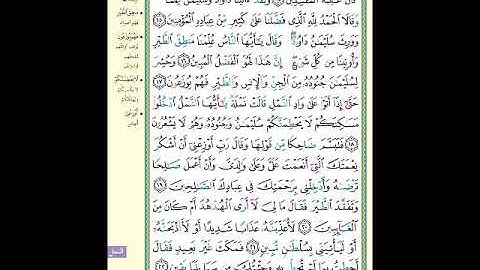 كَانَ عَٰقِبَةُ ٱلْمُفْسِدِينَ ١٤ وَلَقَدْ ءَاتَيْنَا دَاوُۥدَ وَسُلَيْمَٰنَ عِلْمًا
وَقَالَا ٱلْحَمْدُ لِلَّهِ ٱلَّذِى فَضَّلَنَا عَلَىٰ كَثِيرٍ مِّنْ عِبَادِهِ ٱلْمُؤْمِنِينَ ١٥
وَوَرِثَ سُلَيْمَٰنُ دَاوُۥدَ وَقَالَ يَٰٓأَيُّهَا ٱلنَّاسُ عُلِّمْنَا مَنطِقَ ٱلطَّيْرِ
وَأُوتِينَا مِن كُلِّ شَىْءٍ إِنَّ هَٰذَا لَهُوَ ٱلْفَضْلُ ٱلْمُبِينُ ١٦ وَحُشِرَ
لِسُلَيْمَٰنَ جُنُودُهُۥ مِنَ ٱلْجِنِّ وَٱلْإِنسِ وَٱلطَّيْرِ فَهُمْ يُوزَعُونَ ١٧
حَتَّىٰٓ إِذَآ أَتَوْا۟ عَلَىٰ وَادِ ٱلنَّمْلِ قَالَتْ نَمْلَةٌ يَٰٓأَيُّهَا ٱلنَّمْلُ ٱدْخُلُوا۟
مَسَٰكِنَكُمْ لَا يَحْطِمَنَّكُمْ سُلَيْمَٰنُ وَجُنُودُهُۥ وَهُمْ لَا يَشْعُرُونَ
١٨ فَتَبَسَّمَ ضَاحِكًا مِّن قَوْلِهَا وَقَالَ رَبِّ أَوْزِعْنِىٓ أَنْ أَشْكُرَ
نِعْمَتَكَ ٱلَّتِىٓ أَنْعَمْتَ عَلَىَّ وَعَلَىٰ وَٰلِدَىَّ وَأَنْ أَعْمَلَ صَٰلِحًا
تَرْضَىٰهُ وَأَدْخِلْنِى بِرَحْمَتِكَ فِى عِبَادِكَ ٱلصَّٰلِحِينَ ١٩
وَتَفَقَّدَ ٱلطَّيْرَ فَقَالَ مَا لِىَ لَآ أَرَى ٱلْهُدْهُدَ أَمْ كَانَ مِنَ
ٱلْغَآئِبِينَ ٢٠ لَأُعَذِّبَنَّهُۥ عَذَابًا شَدِيدًا أَوْ لَأَا۟ذْبَحَنَّهُۥٓ
أَوْ لَيَأْتِيَنِّى بِسُلْطَٰنٍ مُّبِينٍ ٢١ فَمَكَثَ غَيْرَ بَعِيدٍ فَقَالَ
أَحَطتُ بِمَا لَمْ تُحِطْ بِهِۦ وَجِئْتُكَ مِن سَبَإٍۭ بِنَبَإٍ يَقِينٍ ٢٢